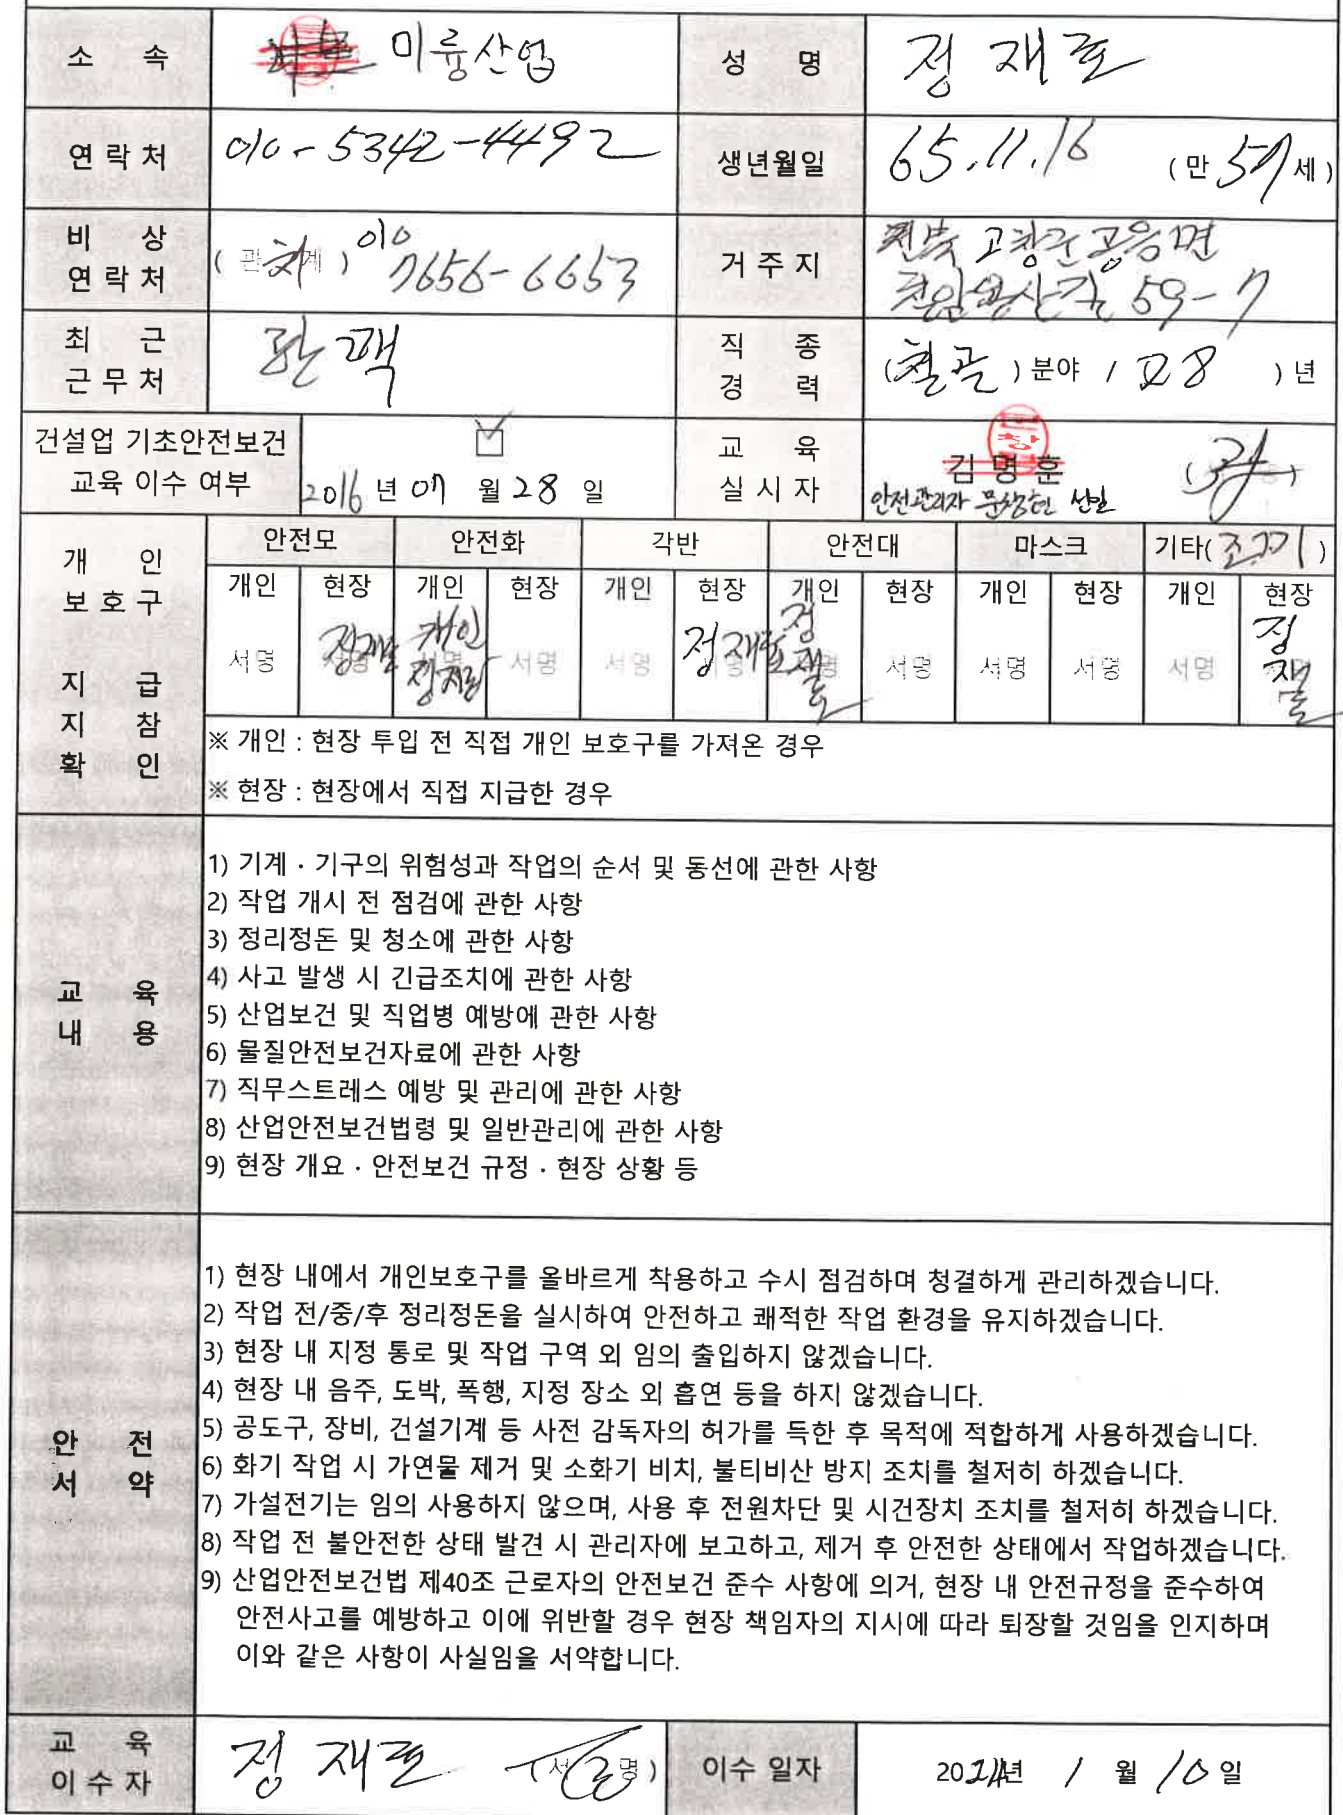 소 속 미륭산업 성 명 정재표
연락처 010-5342-4492 생년월일 65.11.16 (만 57세)
비 상 연락처 (관계) 010 7656-6653 거주지 전북 고창군 공음면
59-7
최 근 근무처 직 종 경 력 (철골) 분야 / 28 ) 년
건설업 기초안전보건 교육 이수 여부 ☑ 2016 년 07 월 28 일
교 육 실시자 김명훈
안전관리자 선임
개 인 보호구 지 급 지 참 확 인
안전모 안전화 각반 안전대 마스크 기타( )
개인 현장 개인 현장 개인 현장 개인 현장 개인 현장 개인 현장
서명 정재표 개인 서명 서명 정재표 정재표 서명 서명 서명 서명 정재표
※ 개인 : 현장 투입 전 직접 개인 보호구를 가져온 경우
※ 현장 : 현장에서 직접 지급한 경우
교 육 내 용
1) 기계 · 기구의 위험성과 작업의 순서 및 동선에 관한 사항
2) 작업 개시 전 점검에 관한 사항
3) 정리정돈 및 청소에 관한 사항
4) 사고 발생 시 긴급조치에 관한 사항
5) 산업보건 및 직업병 예방에 관한 사항
6) 물질안전보건자료에 관한 사항
7) 직무스트레스 예방 및 관리에 관한 사항
8) 산업안전보건법령 및 일반관리에 관한 사항
9) 현장 개요 · 안전보건 규정 · 현장 상황 등
안 전 서 약
1) 현장 내에서 개인보호구를 올바르게 착용하고 수시 점검하며 청결하게 관리하겠습니다.
2) 작업 전/중/후 정리정돈을 실시하여 안전하고 쾌적한 작업 환경을 유지하겠습니다.
3) 현장 내 지정 통로 및 작업 구역 외 임의 출입하지 않겠습니다.
4) 현장 내 음주, 도박, 폭행, 지정 장소 외 흡연 등을 하지 않겠습니다.
5) 공도구, 장비, 건설기계 등 사전 감독자의 허가를 득한 후 목적에 적합하게 사용하겠습니다.
6) 화기 작업 시 가연물 제거 및 소화기 비치, 불티비산 방지 조치를 철저히 하겠습니다.
7) 가설전기는 임의 사용하지 않으며, 사용 후 전원차단 및 시건장치 조치를 철저히 하겠습니다.
8) 작업 전 불안전한 상태 발견 시 관리자에 보고하고, 제거 후 안전한 상태에서 작업하겠습니다.
9) 산업안전보건법 제40조 근로자의 안전보건 준수 사항에 의거, 현장 내 안전규정을 준수하여
안전사고를 예방하고 이에 위반할 경우 현장 책임자의 지시에 따라 퇴장할 것임을 인지하며
이와 같은 사항이 사실임을 서약합니다.
교 육 이수자 정재표 (서명) 이수 일자 2024년 1 월 10 일